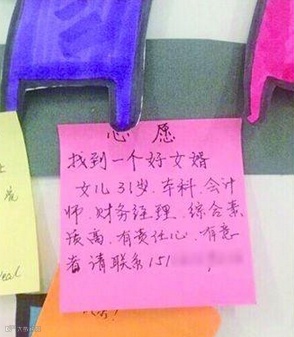 心愿
找到一个好女婿
女儿31岁.本科.会计
师.财务经理.综合素
质高.有责任心.有意
者请联系151